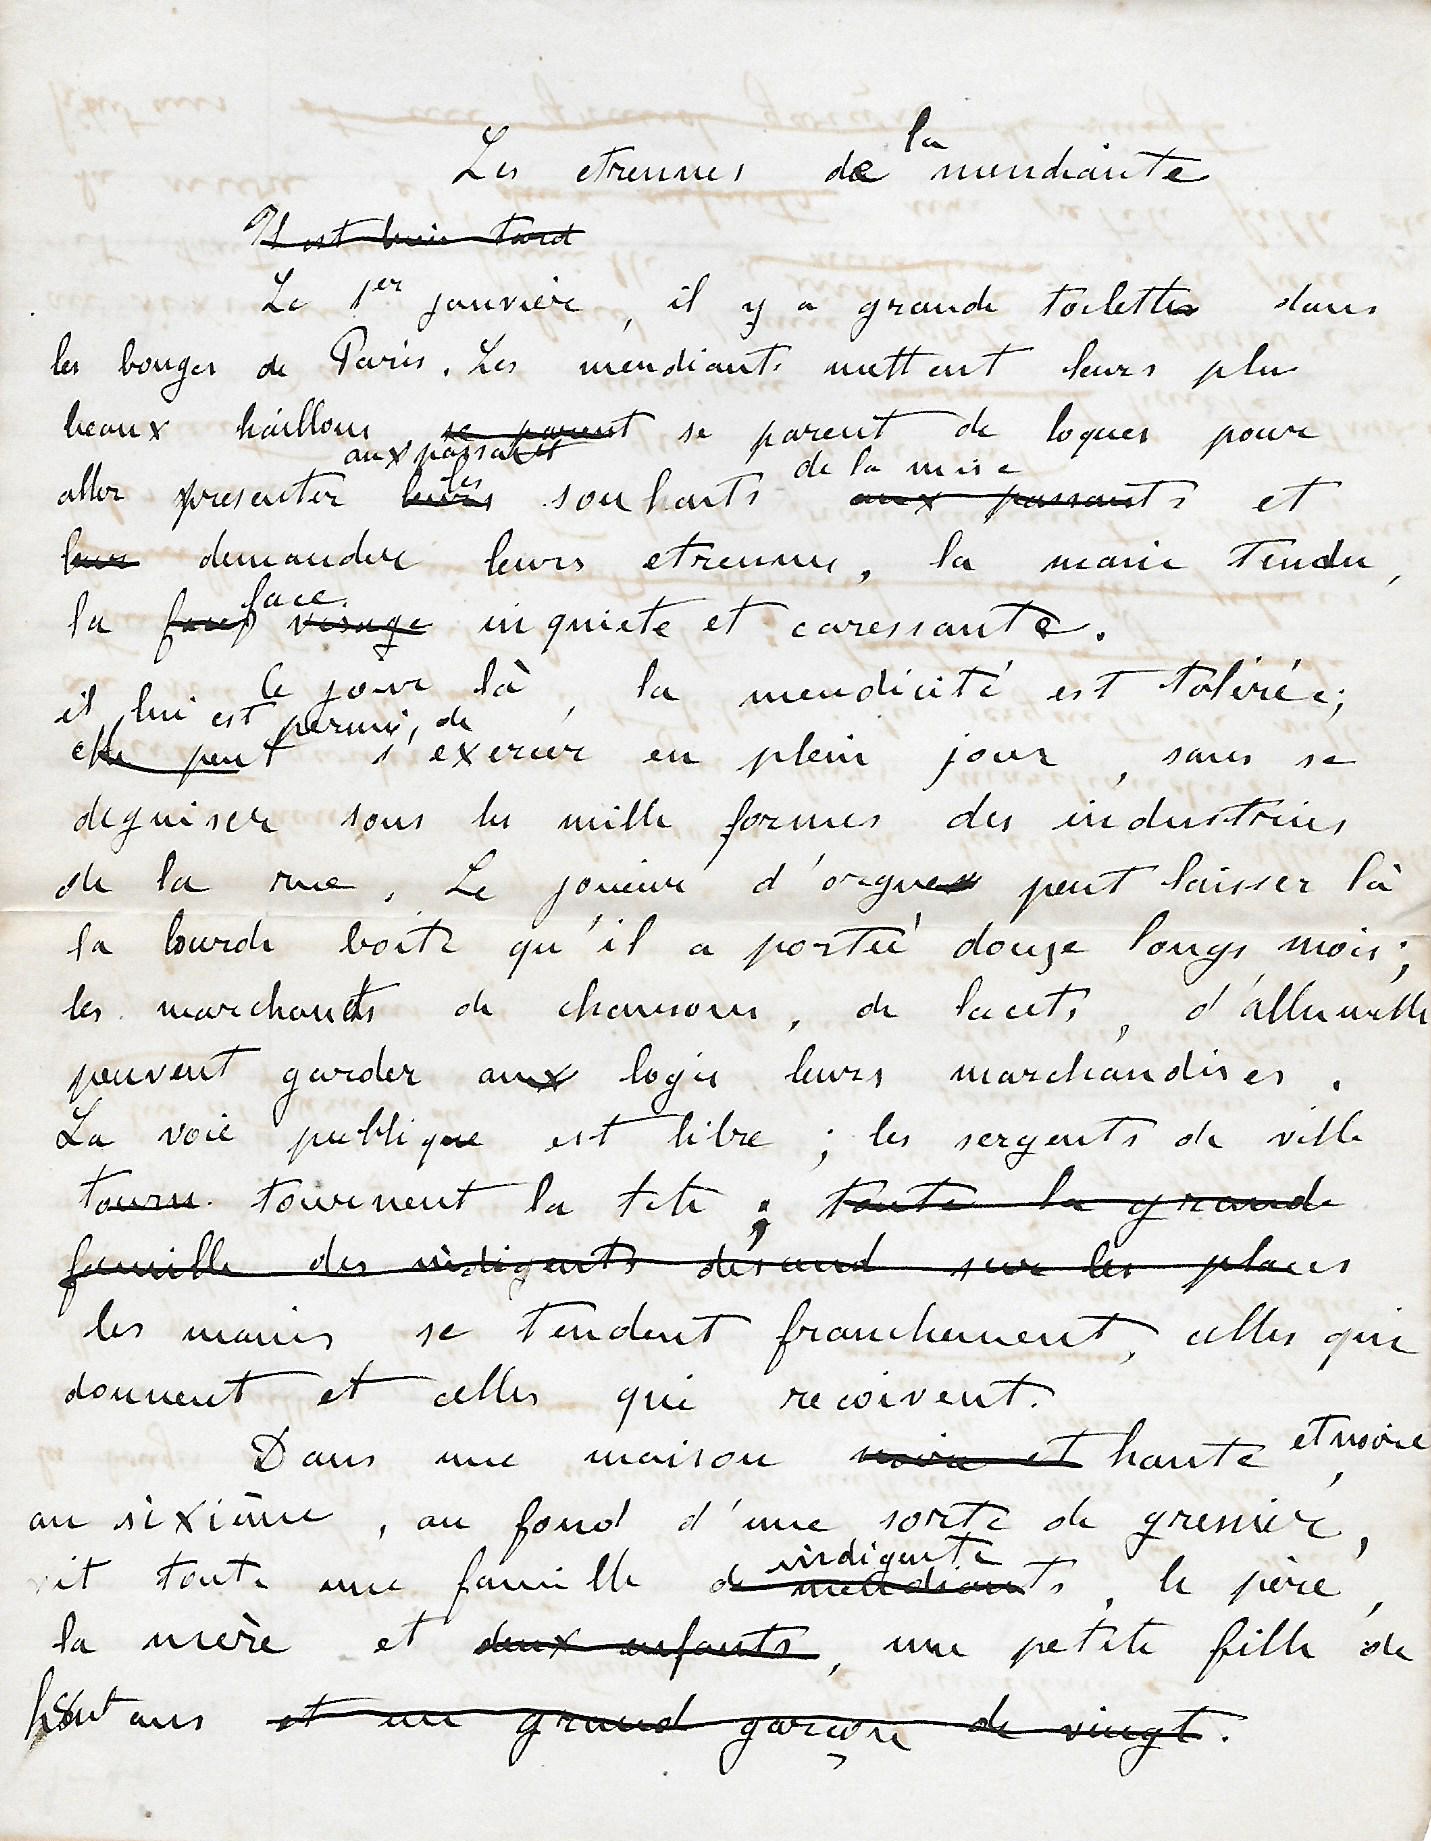 Les etrennes de la mendiante
Il est bien tard
Le 1er janvier, il y a grande toilette dans
les bouges de Paris. Les mendiants mettent leurs plus
beaux haillons se parent se parent de loques pour
aux passants les de la misère
aller presenter leurs souhaits aux passants et
leur demander leurs etrennes, la main tendue,
face
la face visage inquiete et caressante.
Ce jour là, la mendicité est tolérée;
il lui est permis, de
elle peut s'exercer en plein jour, sans se
deguiser sous les mille formes des industries
de la rue. Le joueur d'orgues peut laisser là
la lourde boite qu'il a porté douze longs mois;
les marchands de chansons, de lacets, d'allumette
peuvent garder aux logis leurs marchandises.
La voie publique est libre; les sergents de ville
tourn. tournent la tete; toute la grande
famille des indigents descend sur les places
les mains se tendent franchement, celles qui
donnent et celles qui recoivent.
Dans une maison noire et haute et noire,
au sixième, au fond d'une sorte de grenier,
indigente
vit toute une famille de mendiants, le père,
la mère et deux enfants, une petite fille de
huit ans et un grand garçon de vingt.